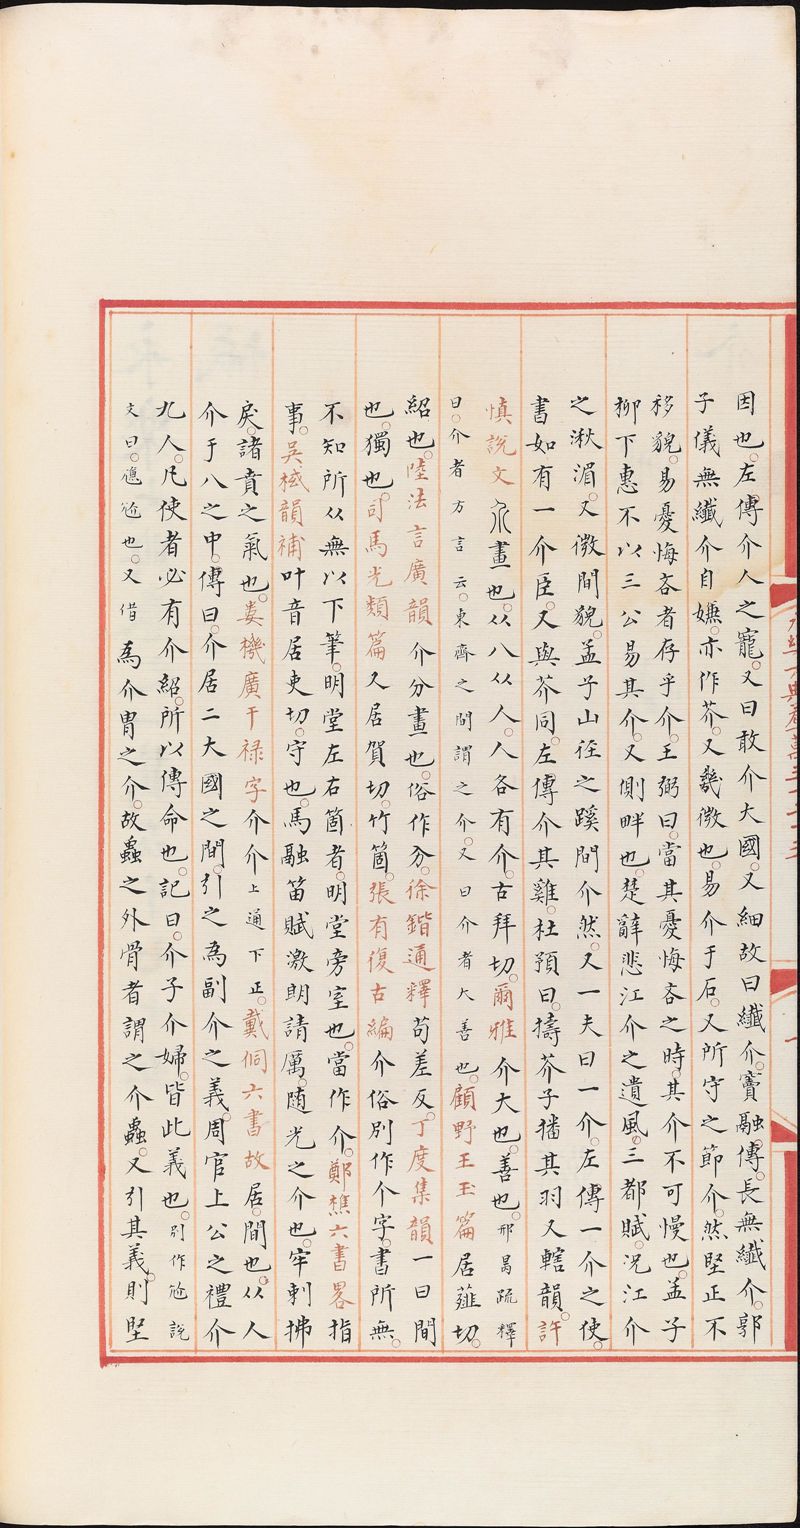 因也。左傳介人之寵。又曰敢介大國。又細故曰纖介。竇融傳。長無纖介。郭
子儀無纖介自嫌。亦作芥。又幾微也。易介于石。又所守之節介。然堅正不
移貌。易憂悔吝者存乎介。王弼曰。當其憂悔吝之時。其介不可慢也。孟子
柳下惠不以三公易其介。又側畔也。楚辭悲江介之遺風。三都賦。况江介
之湫湄。又微間貌。孟子山徑之蹊間介然。又一夫曰一介。左傳一介之使。
書如有一介臣。又與芥同。左傳介其雞。杜預曰。擣芥子播其羽又轄韻。許
慎說文 畫也。从八从人。人各有介。古拜切。爾雅介大也。善也。邢昺疏釋
曰。介者方言云。東齊之間謂之介。又曰介者大善也。顧野王玉篇居薤切。
紹也。陸法言廣韻介分畫也。俗作分。徐鍇通釋苟差反。丁度集韻一曰間
也。獨也。司馬光類篇又居賀切。竹箇。張有復古編介俗別作个字。書所無。
不知所从無以下筆。明堂左右箇者。明堂旁室也。當作介。鄭樵六書畧指
事。吳棫韻補叶音居吏切。守也。馬融笛賦激朗請厲。随光之介也。牢剌拂
戾。諸賁之氣也。婁機廣干禄字介介上通下正。戴侗六書故居。間也。从人
介于八之中。傳曰。介居二大國之間。引之為副介之義。周官上公之禮介
九人。凡使者必有介紹。所以傳命也。記曰。介子介婦。皆此義也。別作尬說
文曰。尲尬也。又借為介冑之介。故蟲之外骨者謂之介蟲。又引其義。則堅